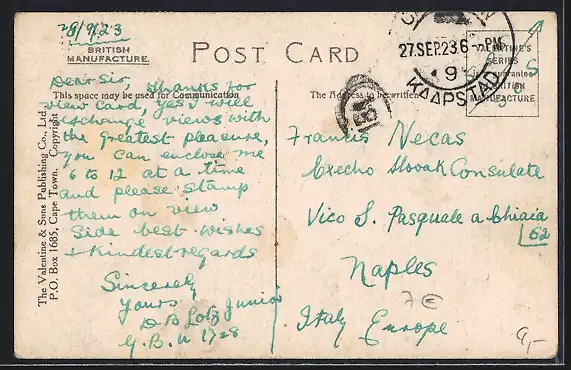 28/9/23
BRITISH
MANUFACTURE.
POST CARD
This space may be used for Communication
The Address to be written
27.SEP.23.6-PM
9
KAAPSTAD
MANUFACTURE
Dear Sir, thanks for
view card, yes I will
exchange views with
the greatest pleasure,
you can enclose me
6 to 12 at a time
and please stamp
them on view
side best wishes
+ kindest regards
Sincerely
Yours
D B Lotz Junior
G.B.U 1728
Francis Necas
Czecho Slovak Consulate
Vico S. Pasquale a Chiaia
62
Naples
Italy Europe
7€
9,-
The Valentine & Sons Publishing Co., Ltd.,
P.O. Box 1685, Cape Town. Copyright